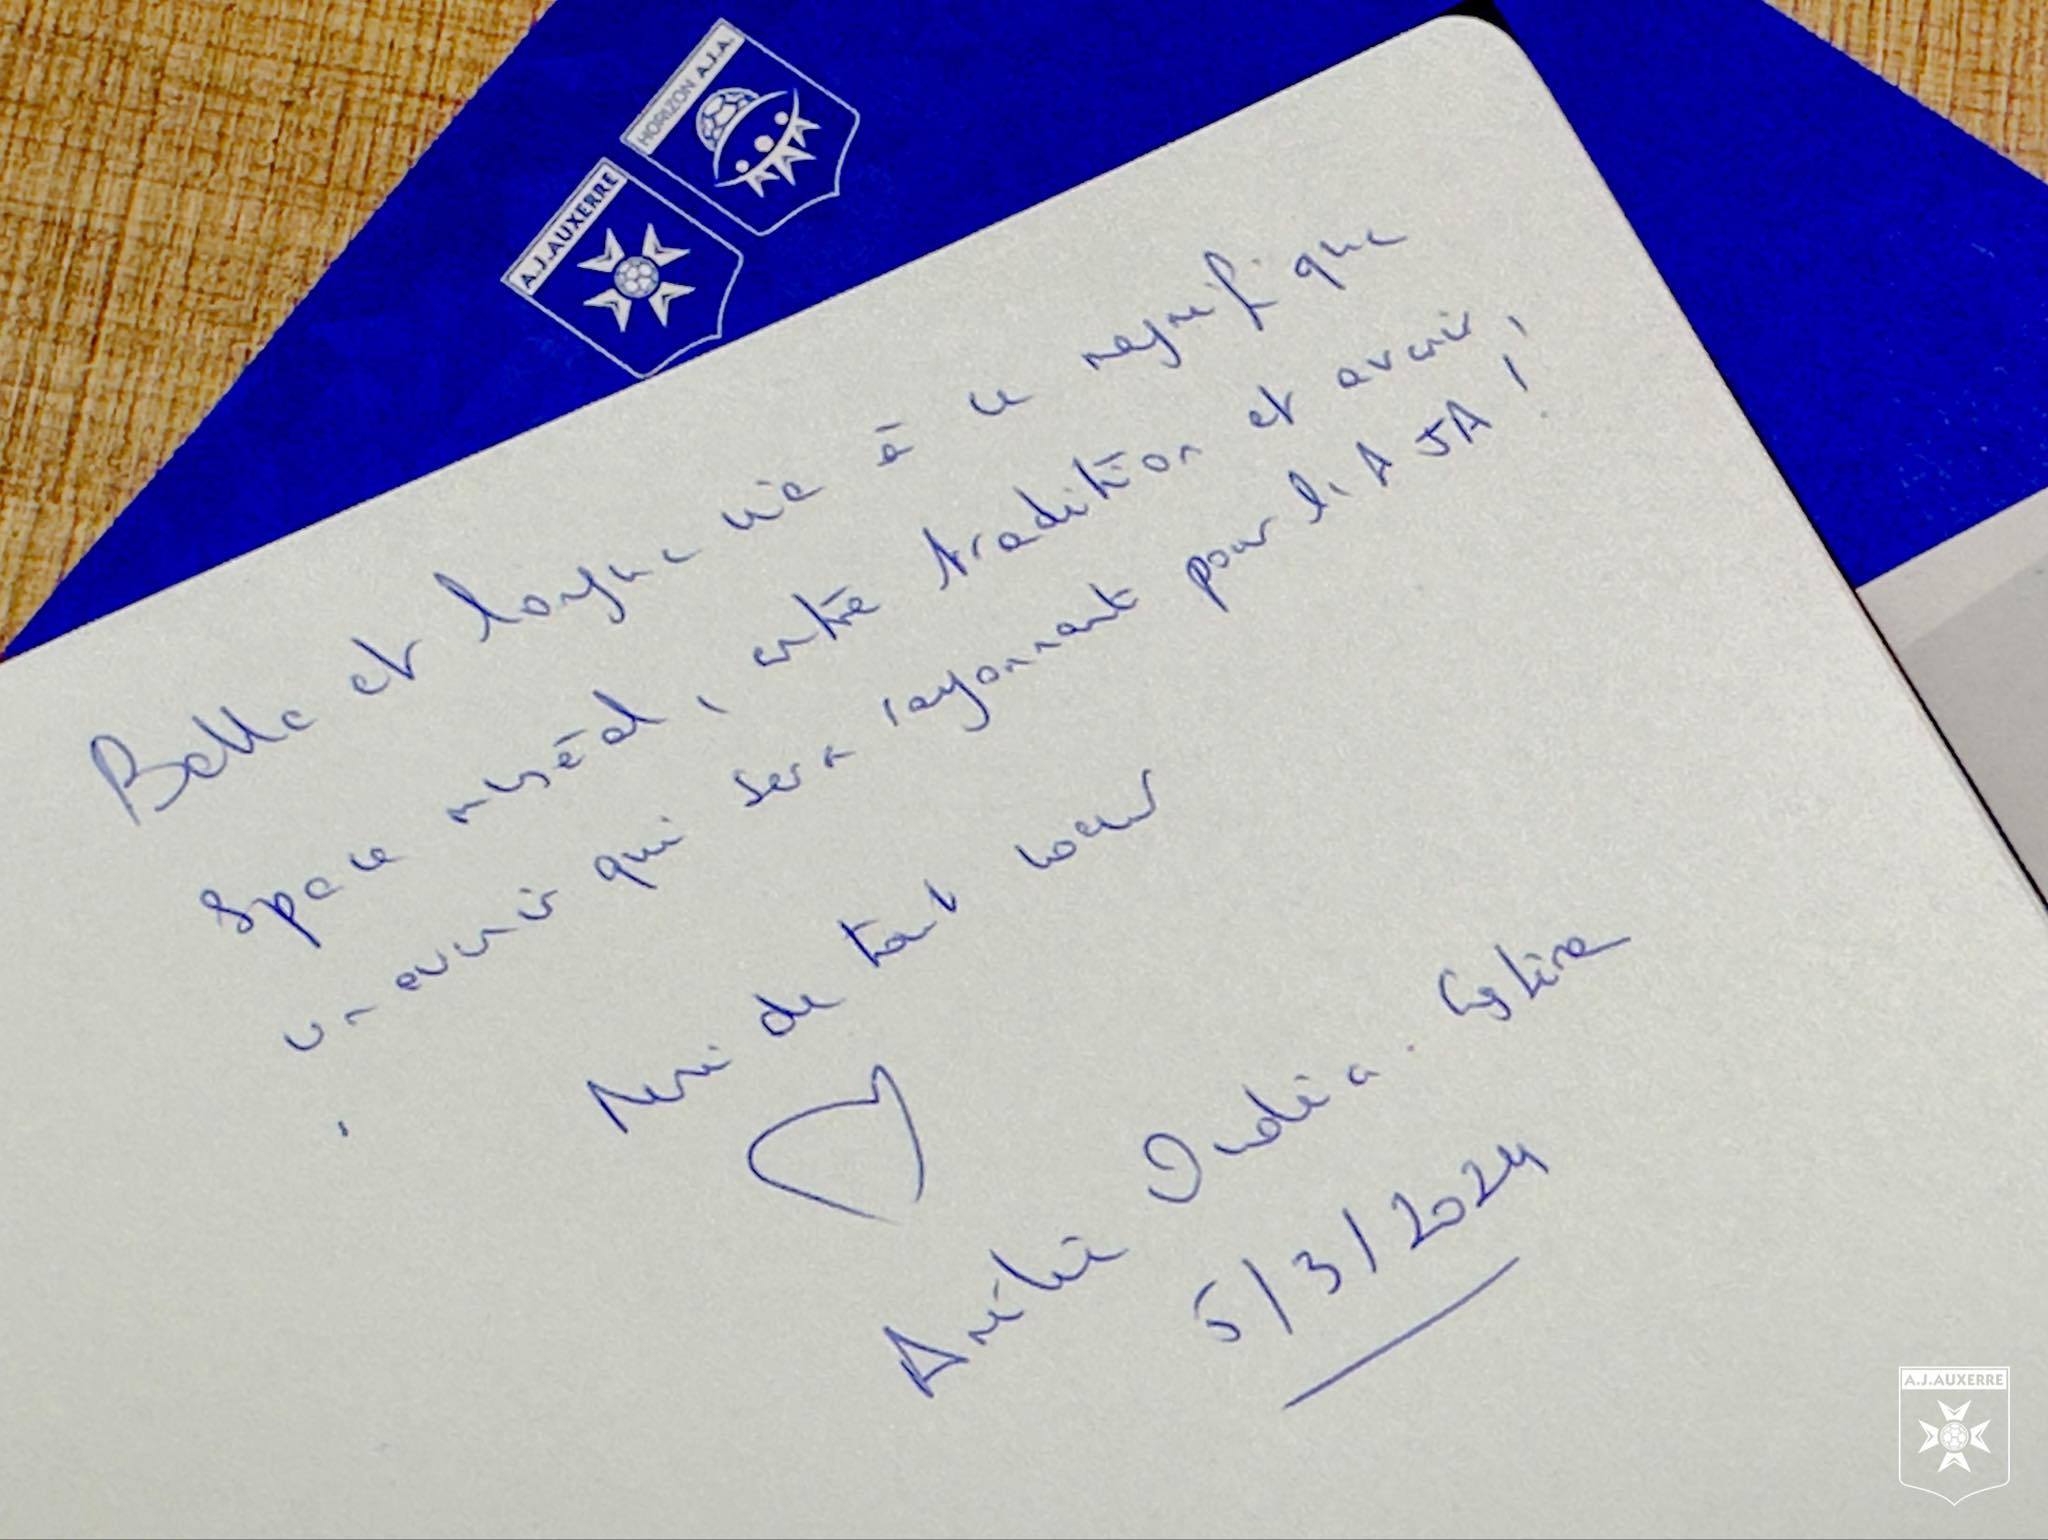 HORIZON A.J.A.
A.J.AUXERRE
Belle et longue vie à ce magnifique
Space muséal, entre tradition et avenir,
un avenir qui sera rayonnant pour l'AJA !
Merci de tout coeur
Amélie Oudéa-Castéra
5/3/2024
A.J.AUXERRE